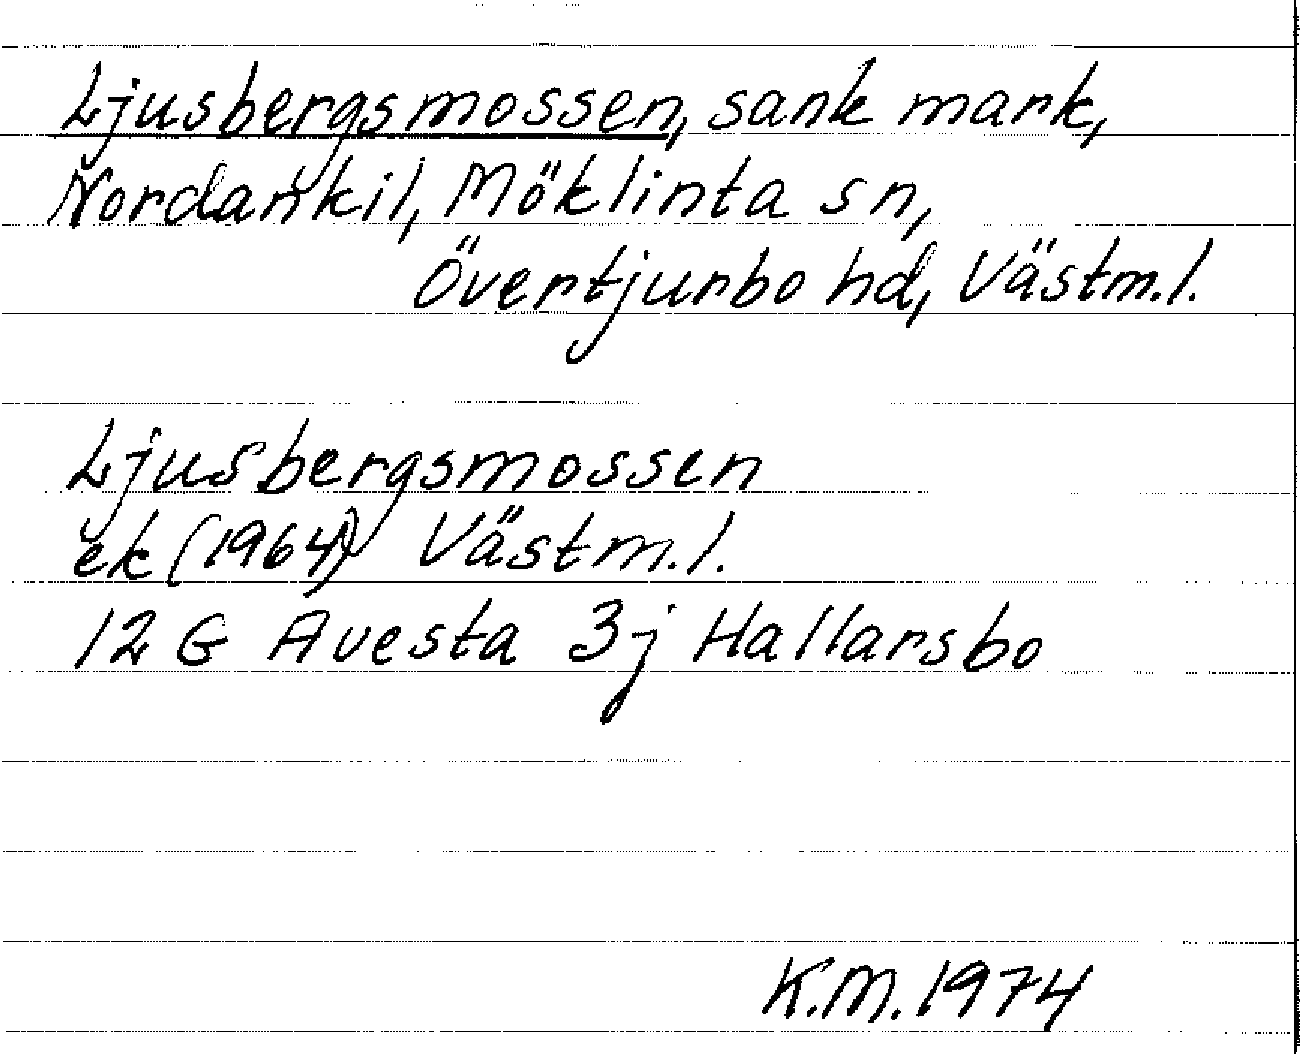 Ljusbergsmossen, sank mark,
Nordankil, Möklinta sn,
Övertjurbo hd, Västm.l.
Ljusbergsmossen
ek (1964) Västm.l.
12 G Avesta 3j Hallarsbo
K.M. 1974